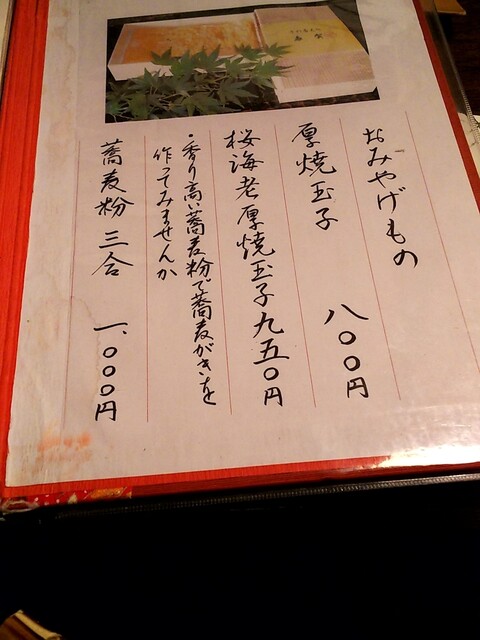 おみやげもの
厚焼玉子 八〇〇円
桜海老厚焼玉子 九五〇円
・香り高い蕎麦粉で蕎麦がきを
作ってみませんか
蕎麦粉 三合 一、〇〇〇円